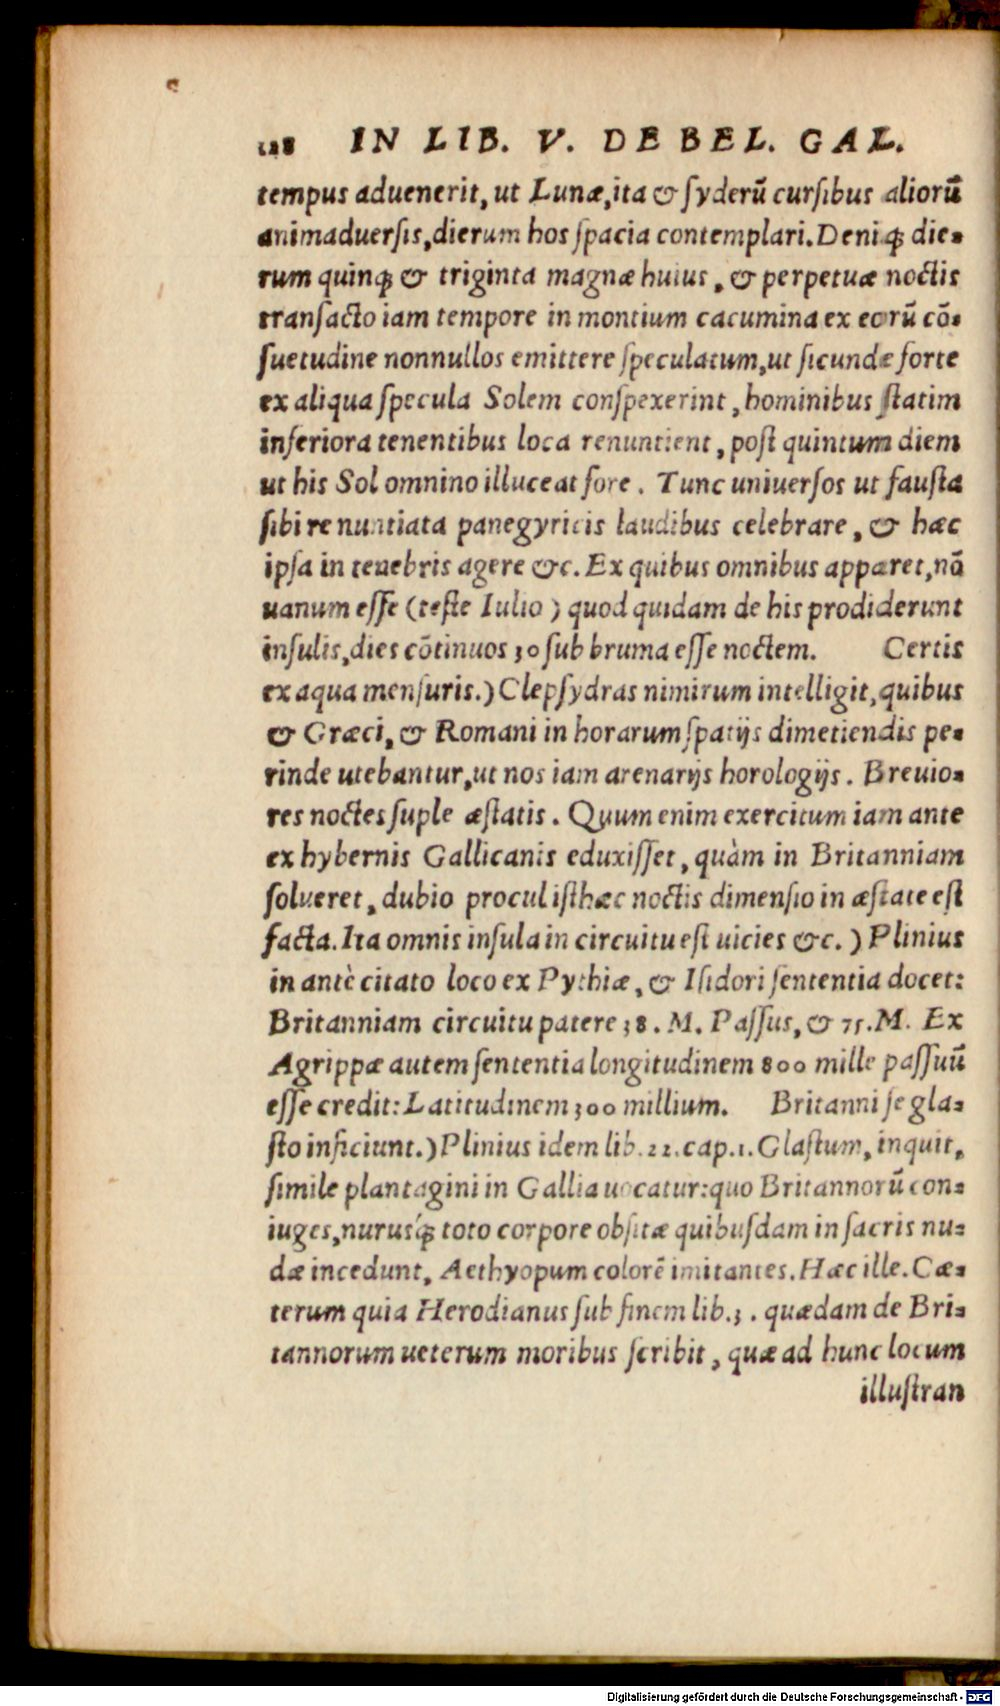 128 IN LIB. V. DE BEL. GAL.
tempus aduenerit, ut Lunæ, ita & ſyderũ curſibus aliorũ
animaduerſis, dierum hos ſpacia contemplari. Deniq; die-
rum quinq; & triginta magnæ huius, & perpetuæ noctis
tranſacto iam tempore in montium cacumina ex eorũ cõ-
ſuetudine nonnullos emittere ſpeculatum, ut ſicunde forte
ex aliqua ſpecula Solem conſpexerint, hominibus ſtatim
inferiora tenentibus loca renuntient, poſt quintum diem
ut his Sol omnino illuceat fore. Tunc uniuerſos ut fauſta
ſibi renuntiata panegyricis laudibus celebrare, & hæc
ipſa in tenebris agere &c. Ex quibus omnibus apparet, nõ
uanum eſſe (teſte Iulio) quod quidam de his prodiderunt
inſulis, dies cõtinuos 30 ſub bruma eſſe noctem. Certis
ex aqua menſuris.) Clepſydras nimirum intelligit, quibus
& Græci, & Romani in horarum ſpatijs dimetiendis pe-
rinde utebantur, ut nos iam arenarijs horologijs. Breuio-
res noctes ſuple æſtatis. Quum enim exercitum iam ante
ex hybernis Gallicanis eduxiſſet, quàm in Britanniam
ſolueret, dubio procul iſthæc noctis dimenſio in æſtate eſt
facta. Ita omnis inſula in circuitu eſt uicies &c.) Plinius
in antè citato loco ex Pythiæ, & Iſidori ſententia docet:
Britanniam circuitu patere 38. M. Paſſus, & 75. M. Ex
Agrippæ autem ſententia longitudinem 800 mille paſſuũ
eſſe credit: Latitudinem 300 millium. Britanni ſe gla-
ſto inficiunt.) Plinius idem lib. 22. cap. 1. Glaſtum, inquit,
ſimile plantagini in Gallia uocatur: quo Britannorũ con-
iuges, nurusq́; toto corpore obſitæ quibuſdam in ſacris nu-
dæ incedunt, Aethyopum colorẽ imitantes. Hæc ille. Cæ-
terum quia Herodianus ſub finem lib. 3. quædam de Bri-
tannorum ueterum moribus ſcribit, quæ ad hunc locum
illuſtran
Digitalisierung gefördert durch die Deutsche Forschungsgemeinschaft - DFG